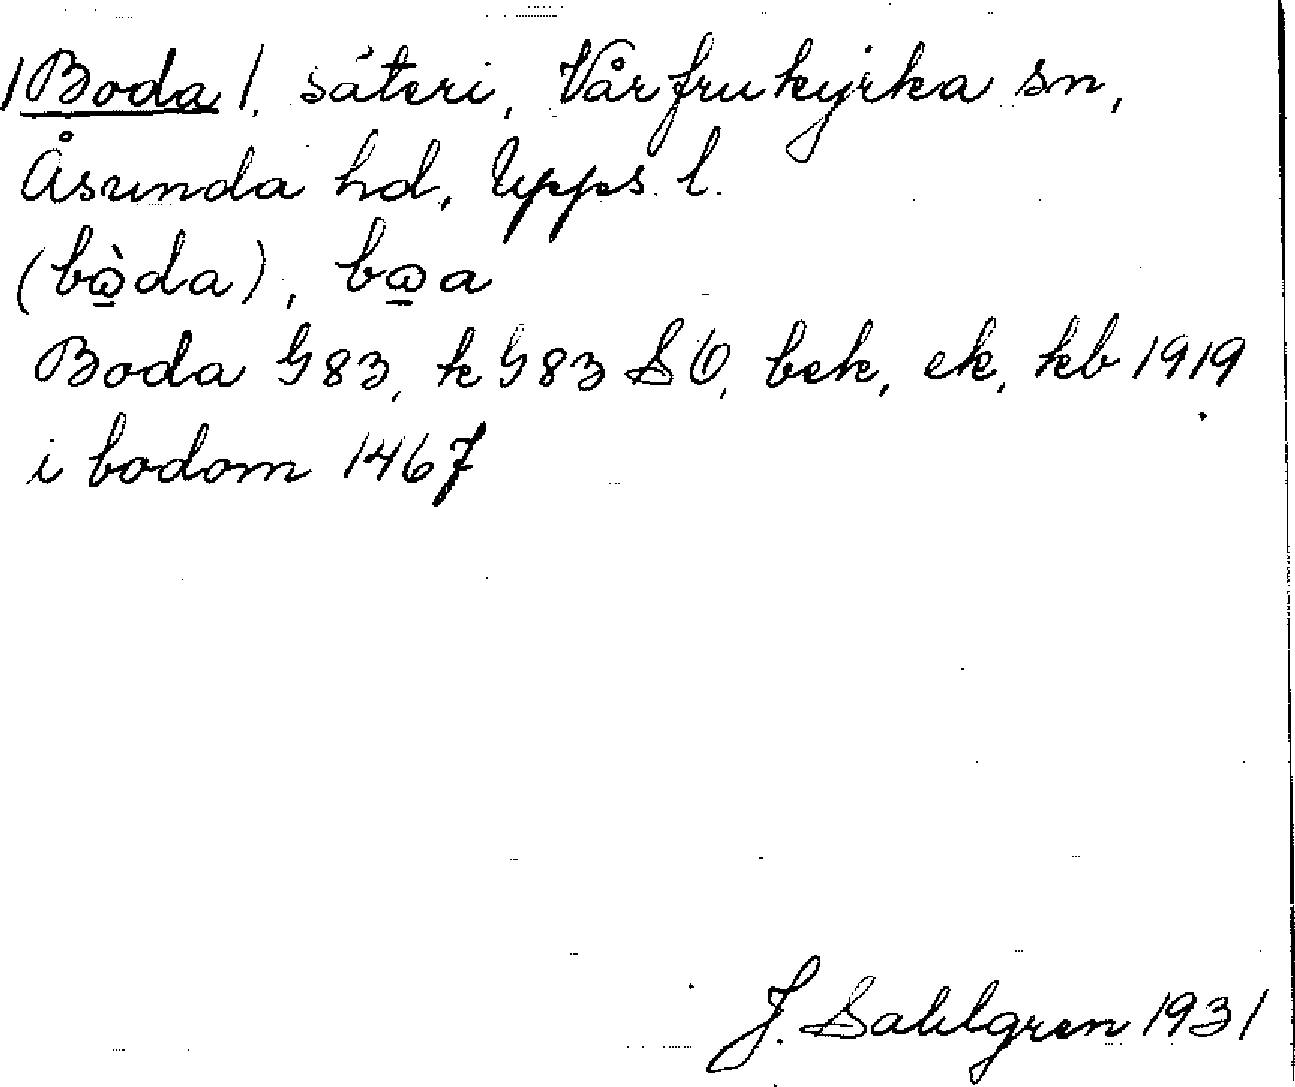 /Boda/, säteri, Vårfrukyrka sn,
Åsunda hd, Upps. l.
(bὼ̲da), bω̲a
Boda G83, k G83 SO, bek, ek, kb 1919
i bodom 1467
J. Sahlgren 1931